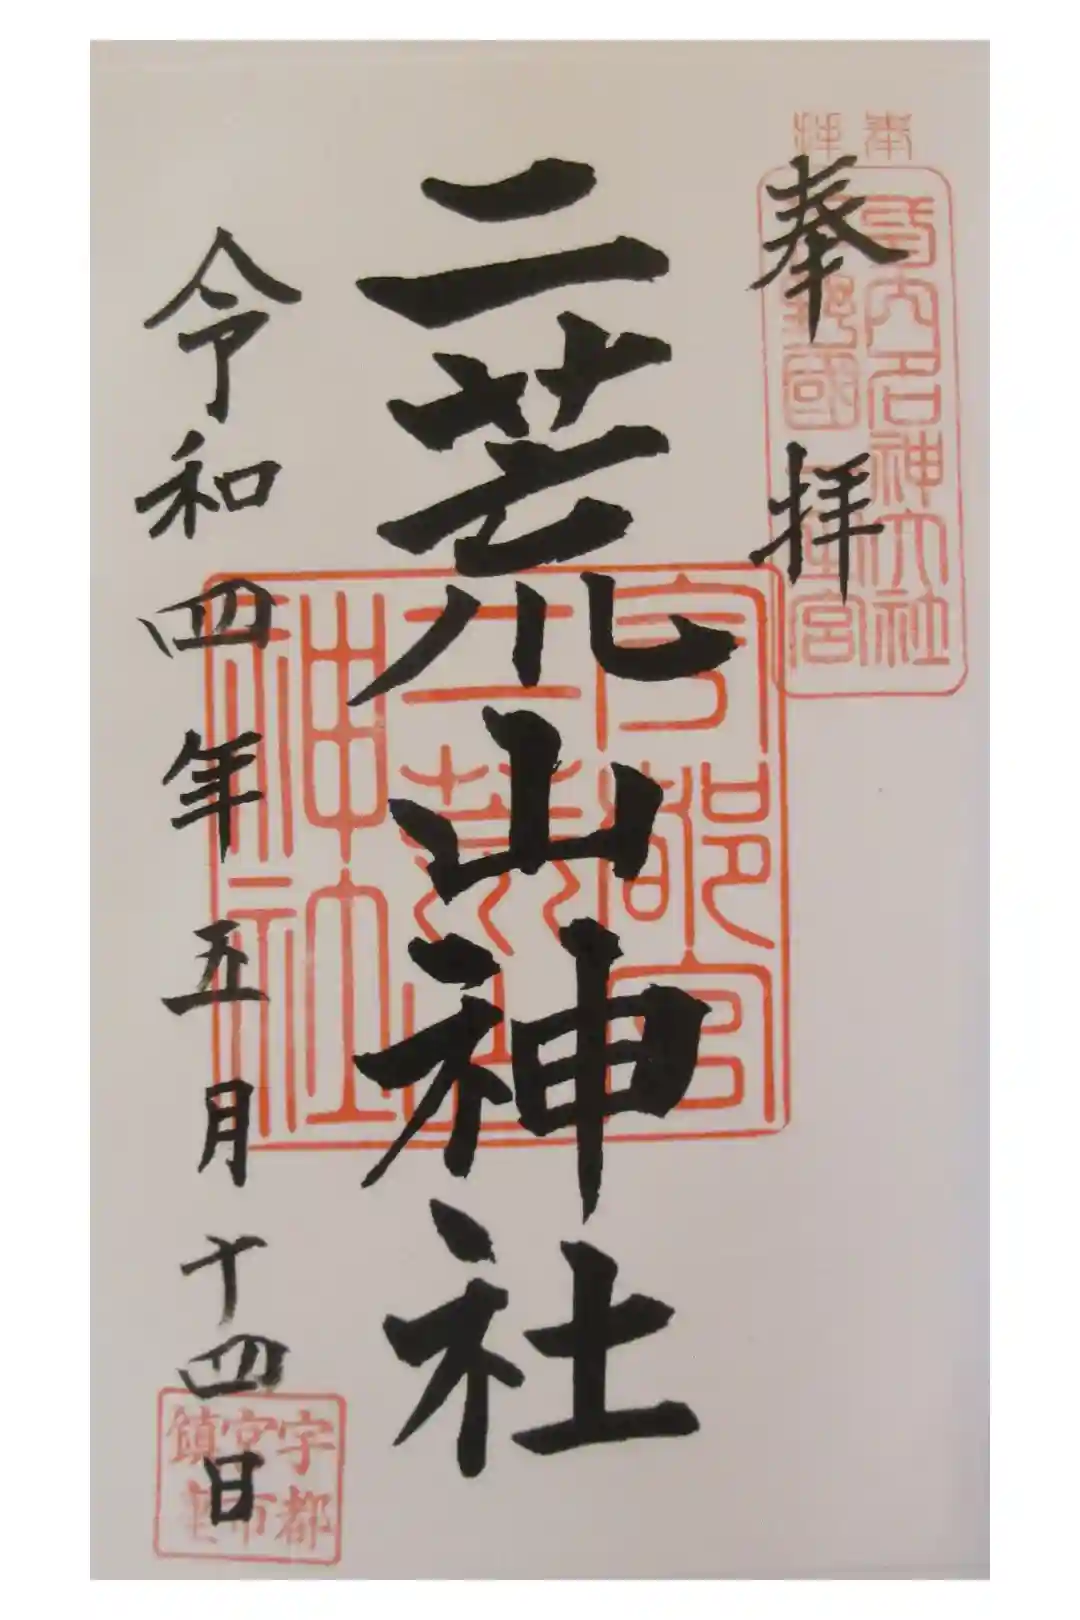 奉拝
奉拝
延喜式内名神大社
野國一之宮
二荒山神社
宇都宮
二荒山
神社
令和四年五月十四日
宇都
宮市
鎮座